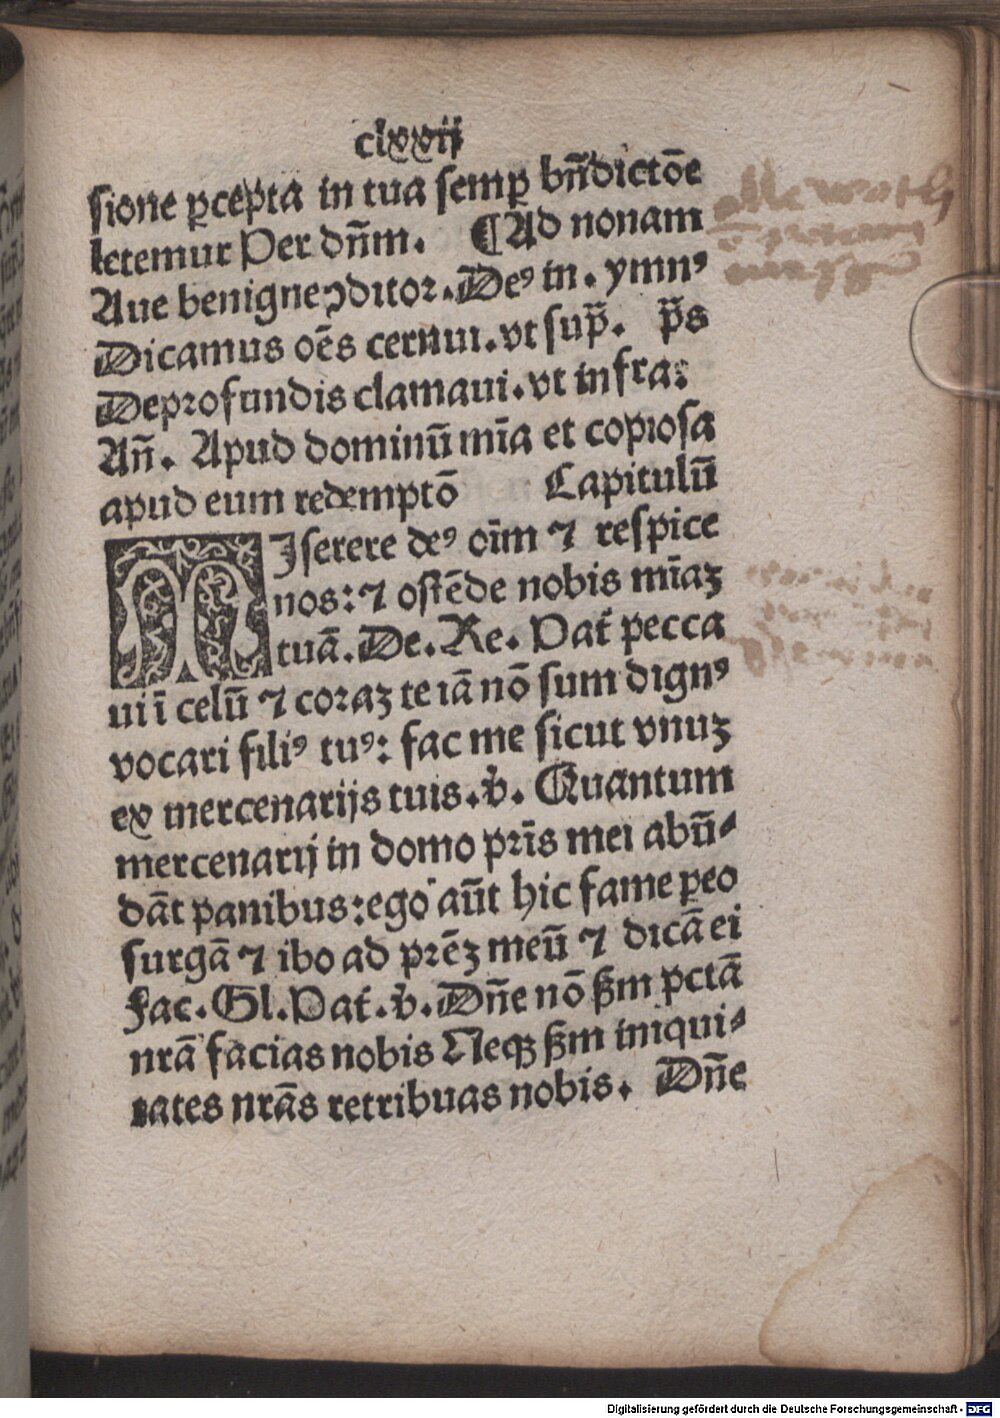 clxxvij
sione ꝑcepta in tua semꝑ bn̄dictōe
letemur Per dn̄m. ¶ Ad nonam
Aue benigne ꝯditor. Deꝰ in. ymnꝰ
Dicamus oēs cernui. vt sup̄. p̄s
Deprofundis clamaui. vt infra:
An̄. Apud dominū mīa et copiosa
apud eum redemptō Capitulū
MIserere deꝰ oīm ⁊ respice
nos: ⁊ ostēde nobis mīaꝫ
tuā. De. Re. Pat̄ pecca
ui ī celū ⁊ coraꝫ te iā nō sum dignꝰ
vocari filiꝰ tuꝰ: fac me sicut vnuꝫ
ex mercenarijs tuis. v̄. Quantum
mercenarij in domo pr̄is mei abū⸗
dāt panibus: ego aūt hic fame ꝑeo
surgā ⁊ ibo ad pr̄eꝫ meū ⁊ dicā ei
Fac. Gl. Pat̄. v̄. Dn̄e nō ẜm pctā
nr̄ā facias nobis Neqꝫ ẜm iniqui⸗
tates nr̄as retribuas nobis. Dn̄e
Digitalisierung gefördert durch die Deutsche Forschungsgemeinschaft - DFG